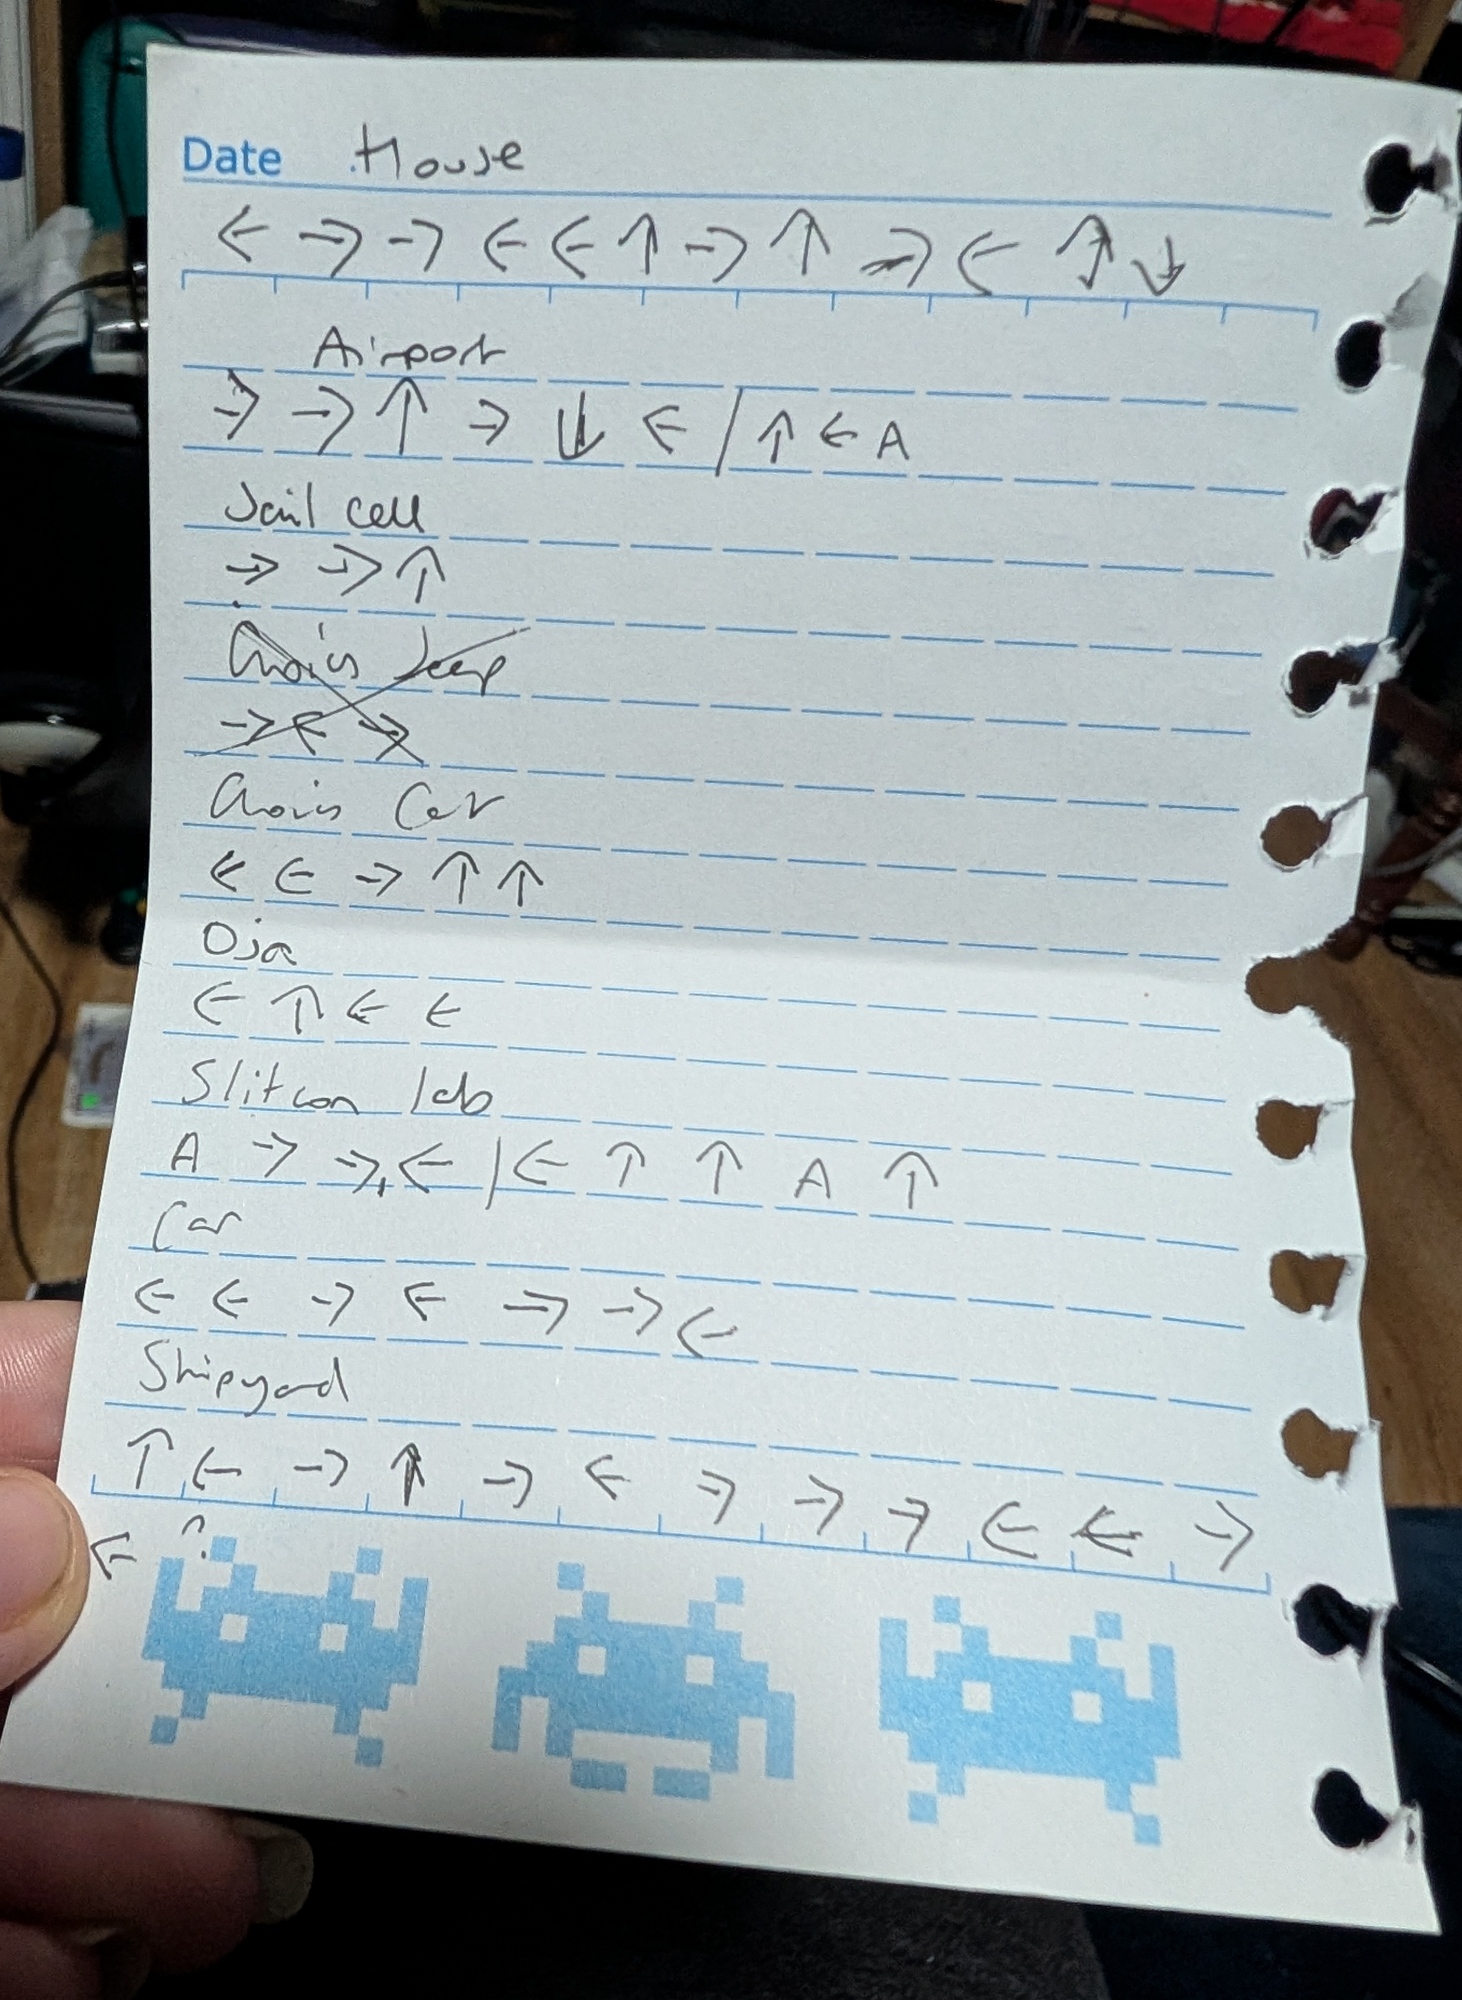 Date House
← → → ← ← ↑ → ↑ → ← ↑ ↓
Airport
→ → ↑ → ↓ ← / ↑ ← A
Jail cell
→ → ↑
Jeep
→ ← →
Car
← ← → ↑ ↑
Oja
← ↑ ← ←
Slitcon lab
A → → ← | ← ↑ ↑ A ↑
Car
← ← → ← → → ←
Shipyard
↑ ← → ↑ → ← → → → ← ← →
← ?